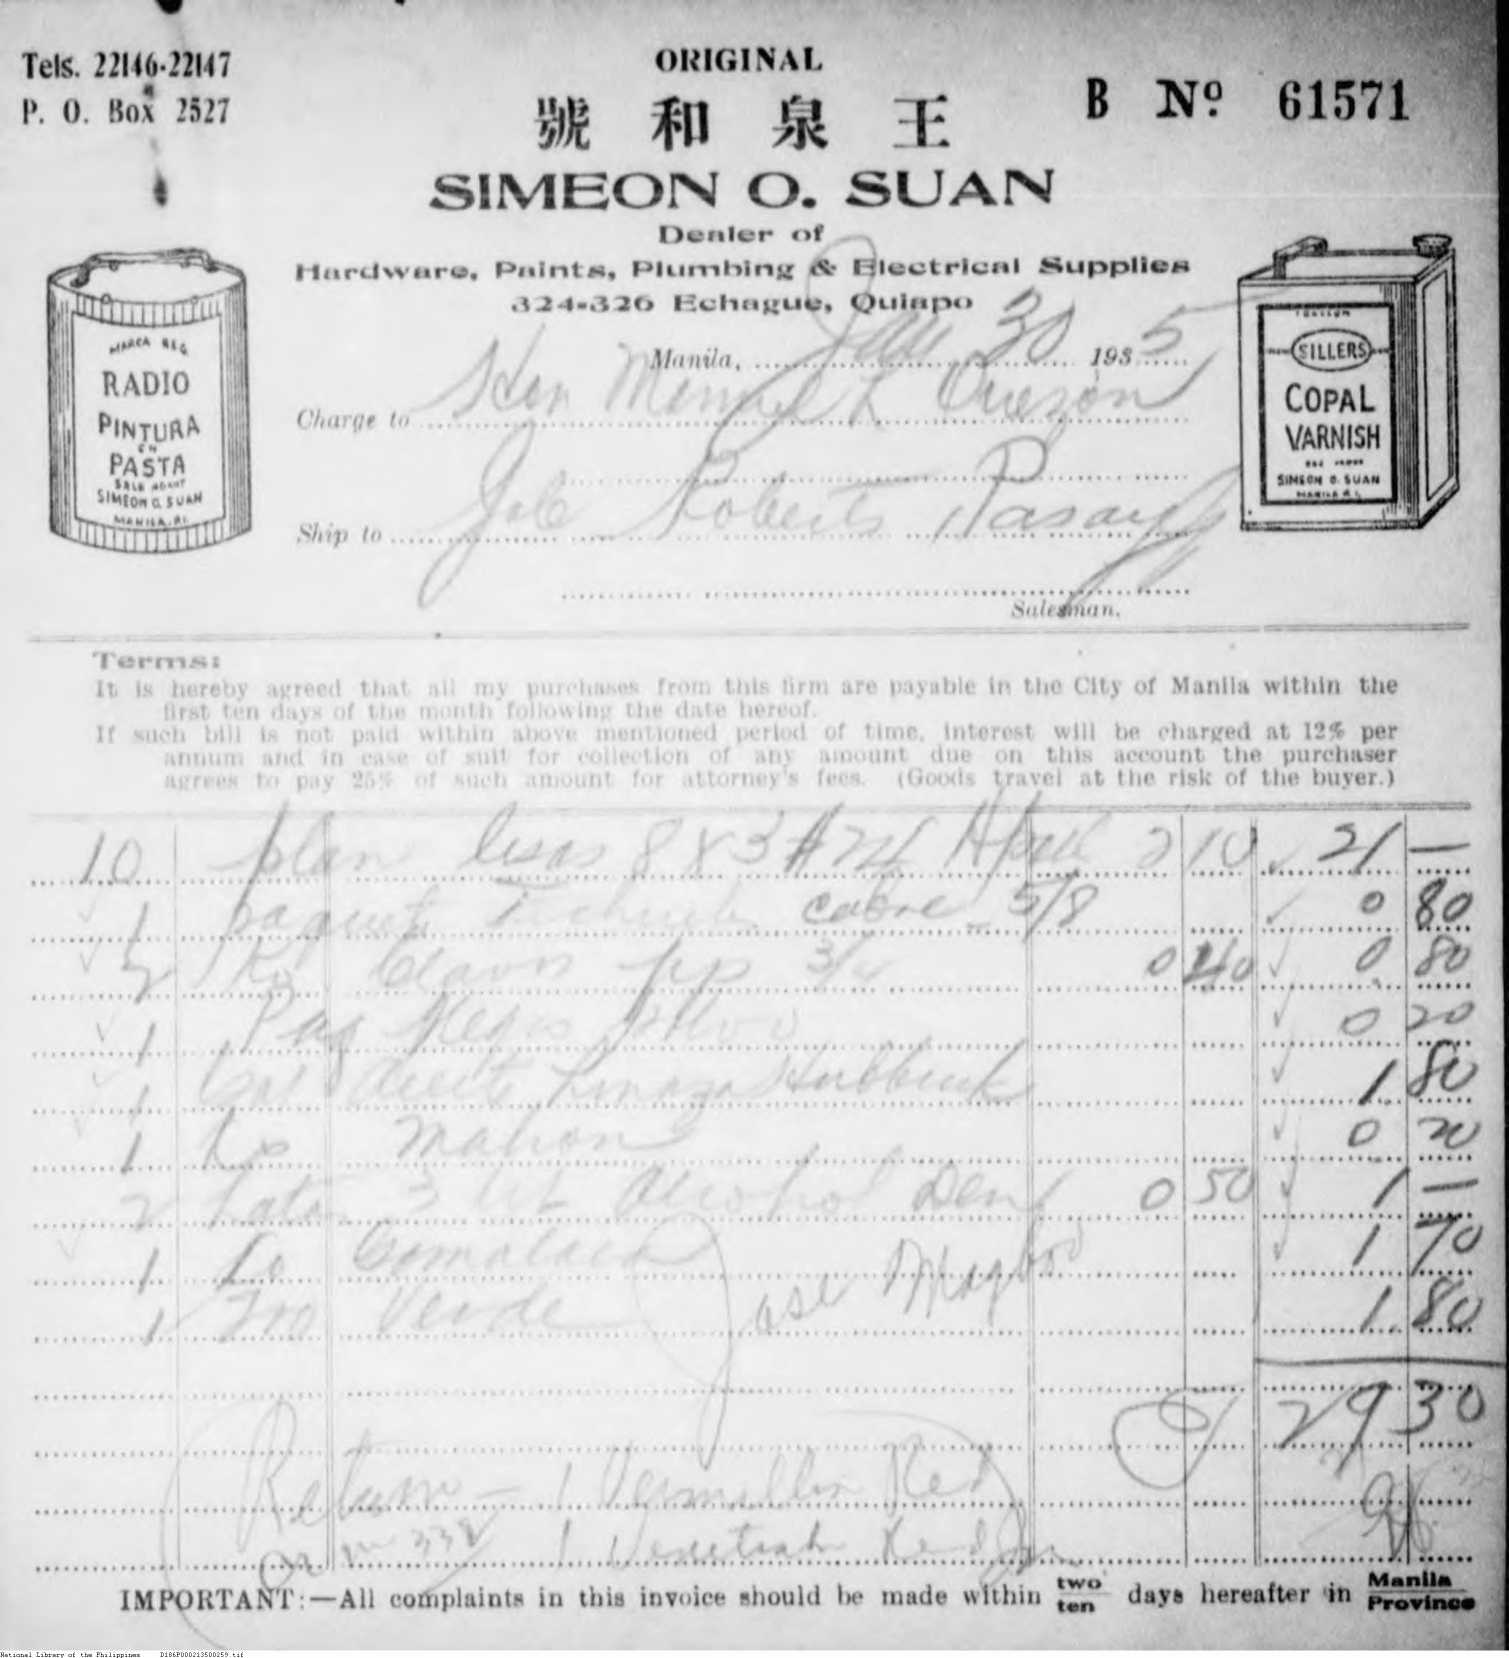 Tels. 22146-22147
P. O. Box 2527
ORIGINAL
B Nº 61571
號和泉王
SIMEON O. SUAN
Dealer of
Hardware, Paints, Plumbing & Electrical Supplies
324-326 Echague, Quiapo
Manila, Jan 30 1935
Charge to Hon Manuel L Quezon
Job Roberts Pasay
Ship to
Salesman.
MARCA REG
RADIO
PINTURA
EN
PASTA
SALE AGENT
SIMEON O. SUAN
MANILA, P.I.
SILLERS
COPAL
VARNISH
SIMEON O. SUAN
MANILA P.I.
Terms:
It is hereby agreed that all my purchases from this firm are payable in the City of Manila within the
first ten days of the month following the date hereof.
If such bill is not paid within above mentioned period of time, interest will be charged at 12% per
annum and in case of suit for collection of any amount due on this account the purchaser
agrees to pay 25% of such amount for attorney's fees. (Goods travel at the risk of the buyer.)
10 plan lisas 8 x 3 # 24 2 10 21 —
1 paquete cobre 5/8 0 80
2 Ko Clavos pp 3/4 0 40 0 80
1 Paq 0 20
1 Gal Aceite Linaza Hubbuck 1 80
1 Lo Mahon 0 20
2 Latas 3 Alcohol Den 0 50 1 —
1 Lo Gomalaca 1 70
1 Verde 1 80
Jose
29 30
Return — 1 Vermillion Red
338 1 Venetian Red
IMPORTANT:—All complaints in this invoice should be made within two ten days hereafter in Manila Province
National Library of the Philippines D186P000213500259.tif